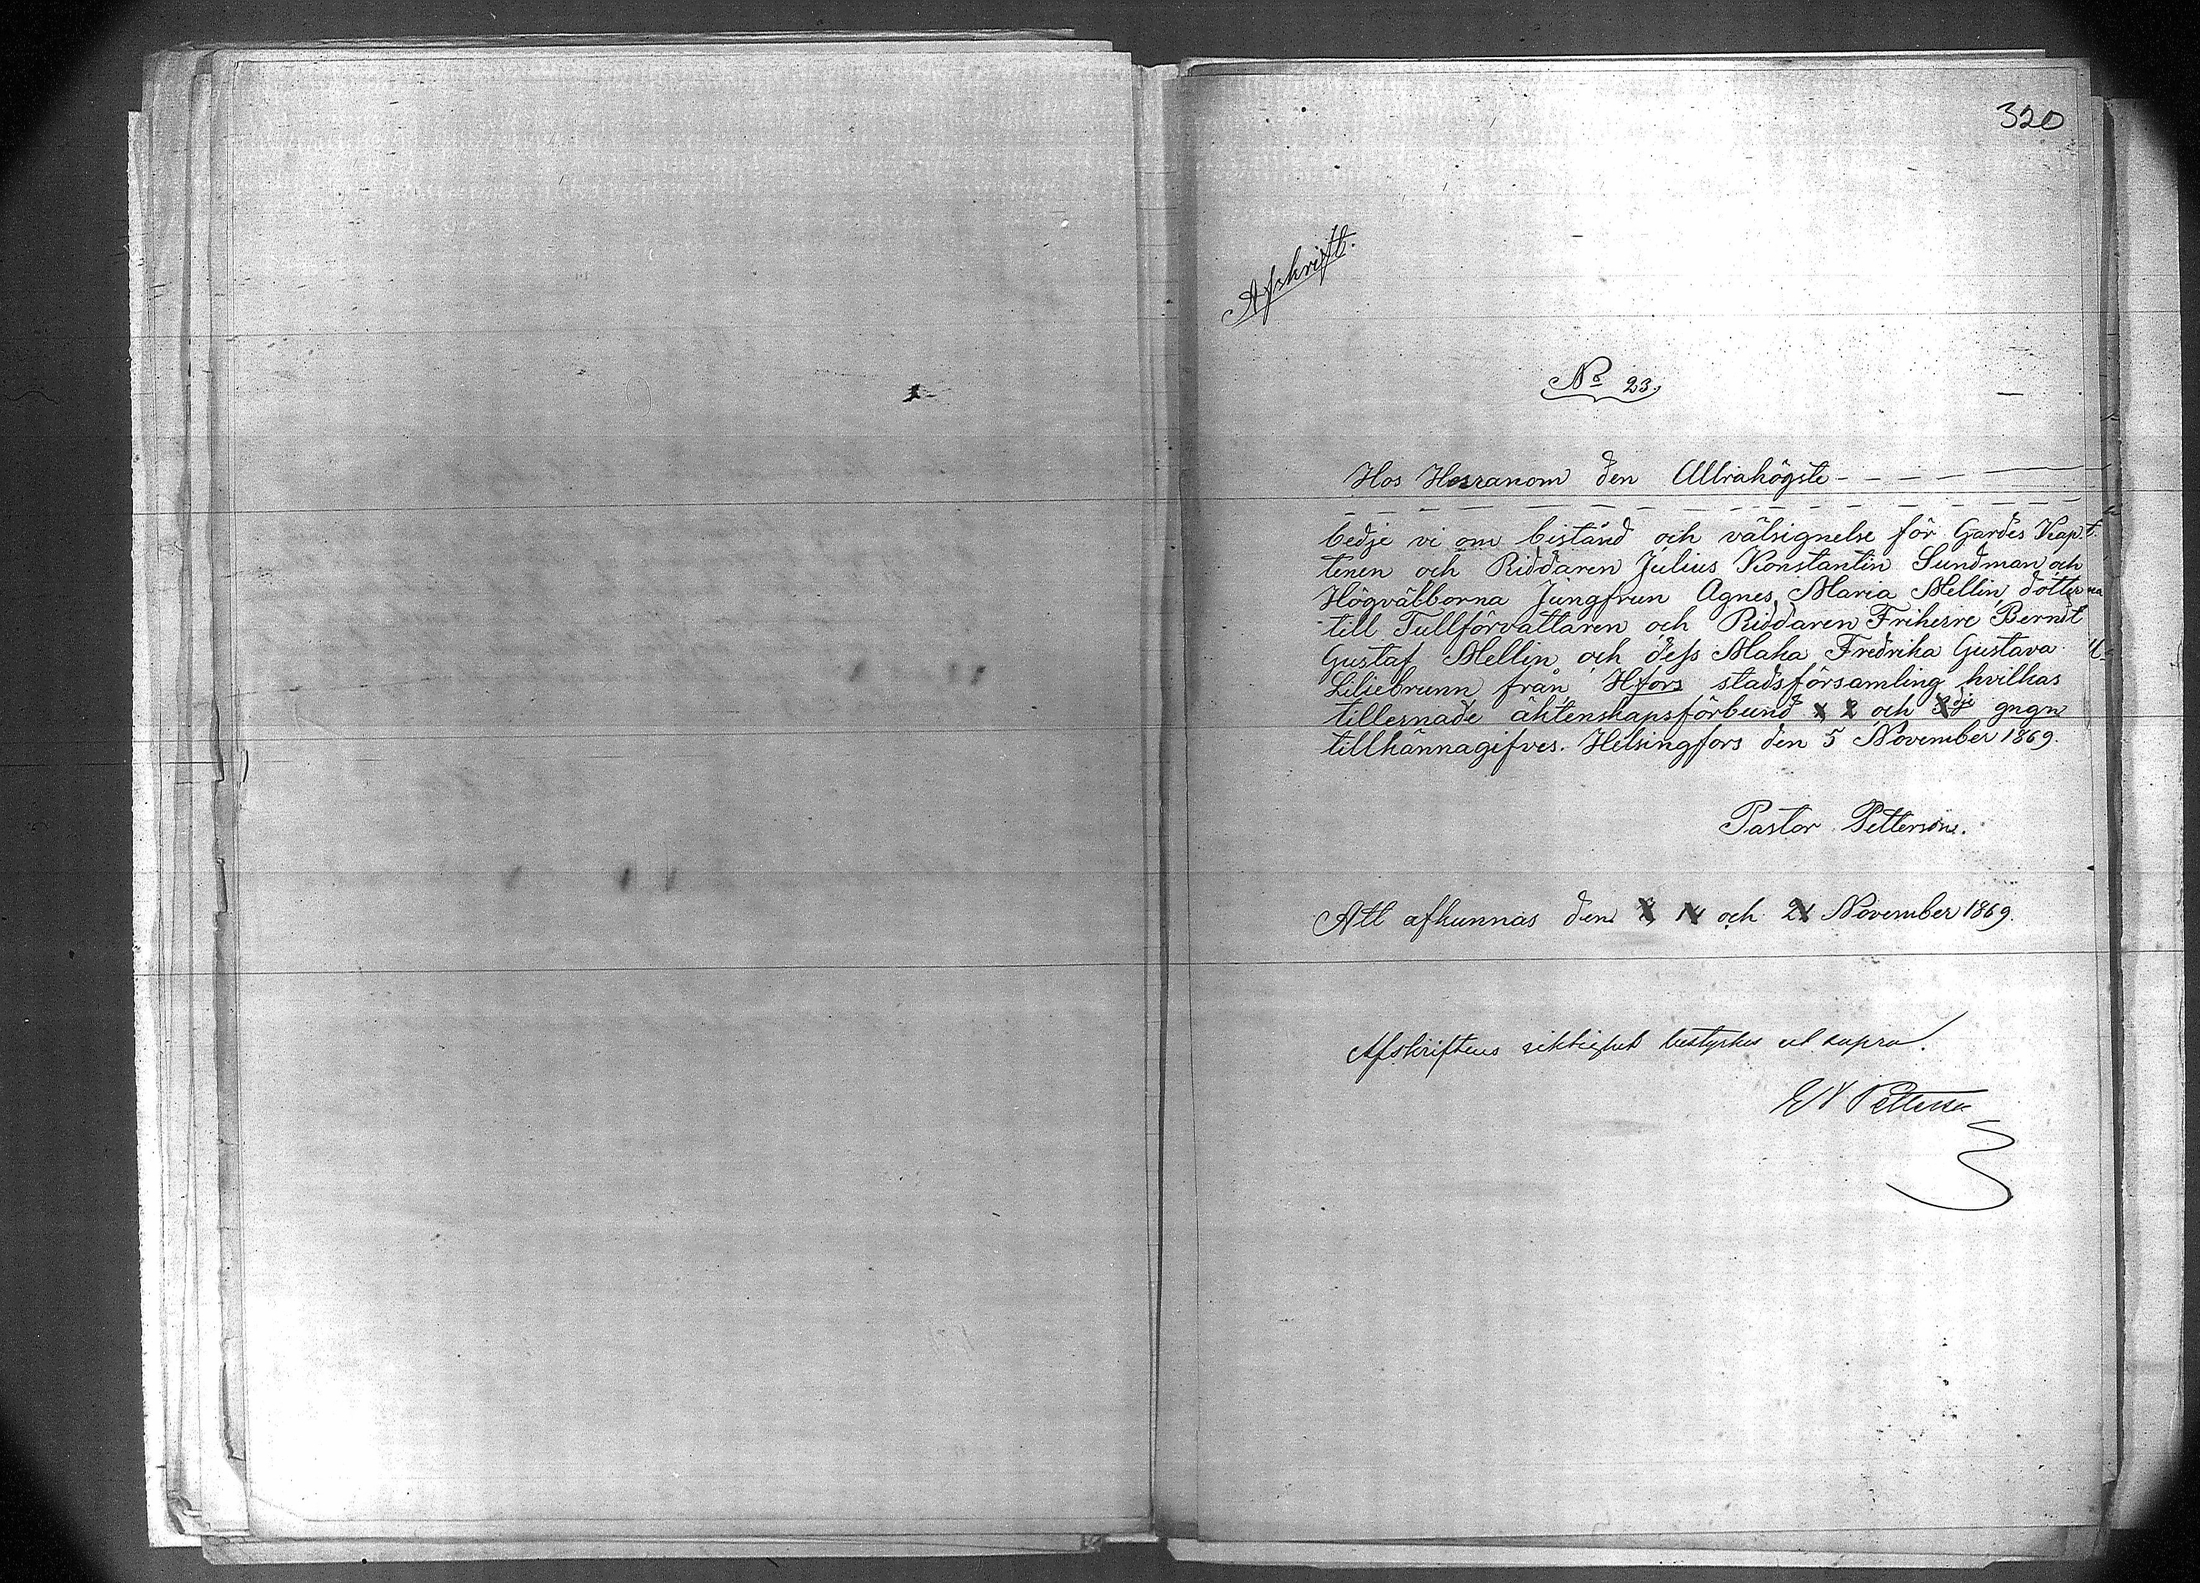 320
Afskrift.
No 23.
Hos Herranom den Allrahögste - - - -
bedje vi om bistånd och välsignelse för Gardes Kap.t.
tenen och Riddaren Julius Konstantin Sundman och
Högvälborna Jungfrun Agnes Maria Mellin, dotter
till Tullförvaltaren och Riddaren Friherre Berndt
Gustaf Mellin och dess Maka Fredrika Gustava
Liliebrunn från Hfors stadsförsamling hvilkas
tillernade äktenskapsförbund och gngn
tillkännagifves. Helsingfors den 5 November 1869.
Pastor Petterson.
Att afkunnas den och November 1869.
Afskriftens riktighet bestyrkes ut supra.